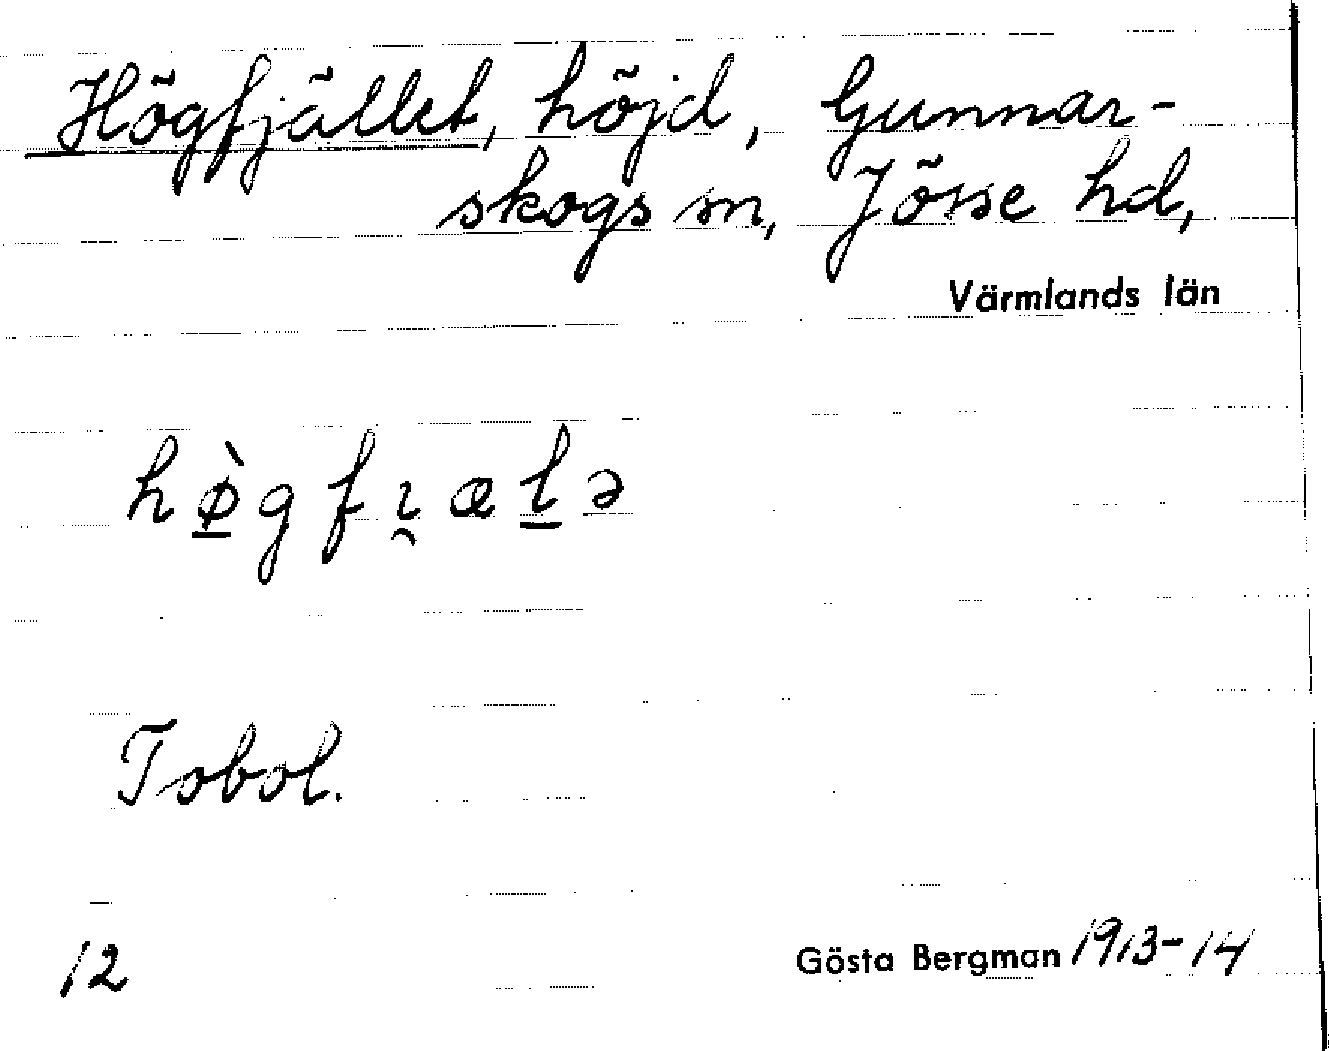 Högfjället, höjd, Gunnar-
skogs sn, Jösse hd,
Värmlands län
hø̠̀gfı̯æl̠ə
Tobol.
12
Gösta Bergman 1913-14